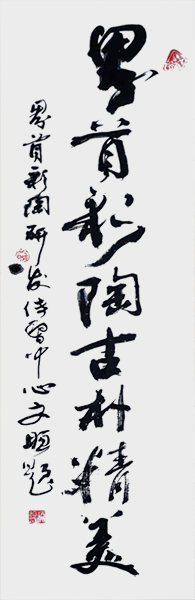 界首彩陶古朴精美
界首彩陶研发传习中心文暄题